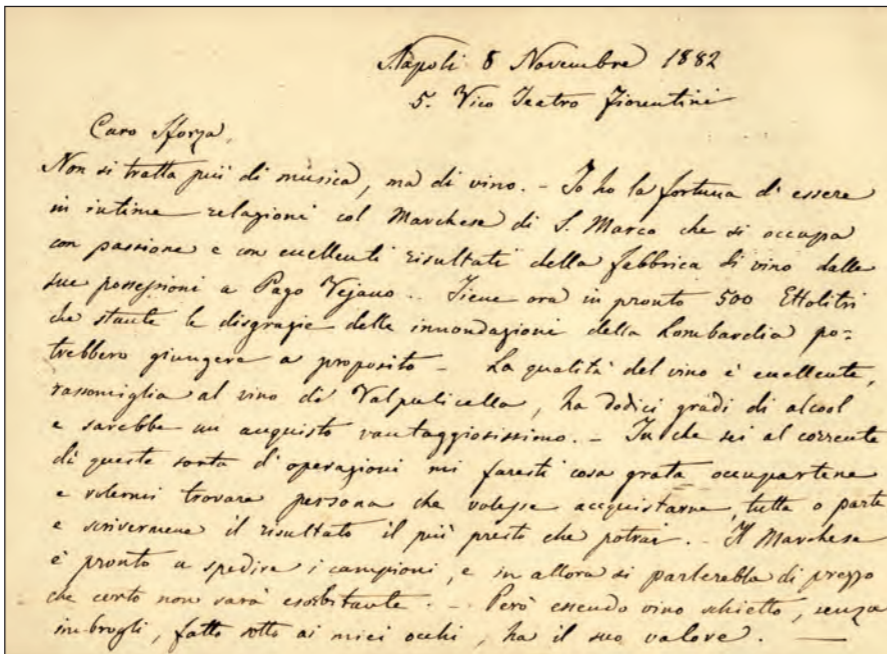 Napoli 8 Novembre 1882
5. Vico Teatro Fiorentini
Caro Sforza,
Non si tratta più di musica, ma di vino. - Io ho la fortuna di essere
in intime relazioni col Marchese di S. Marco che si occupa
con passione e con eccellenti risultati della fabbrica di vino dalle
sue possessioni a Pago Vejano.. Tiene ora in pronto 500 Ettolitri
che stante le disgrazie delle innondazioni della Lombardia po=
trebbero giungere a proposito - La qualità del vino è eccellente,
rassomiglia al vino di Valpulicella, ha dodici gradi di alcool
e sarebbe un acquisto vantaggiosissimo. - Tu che sei al corrente
di queste sorta d'operazioni mi faresti cosa grata occupartene
e volermi trovare persona che volesse acquistarne, tutta o parte
e scrivermene il risultato il più presto che potrai. - Il Marchese
è pronto a spedire i campioni, e in allora si parlerebbe di prezzo
che certo non sarà esorbitante. - Però essendo vino schietto, senza
imbrogli, fatto sotto ai miei occhi, ha il suo valore. —